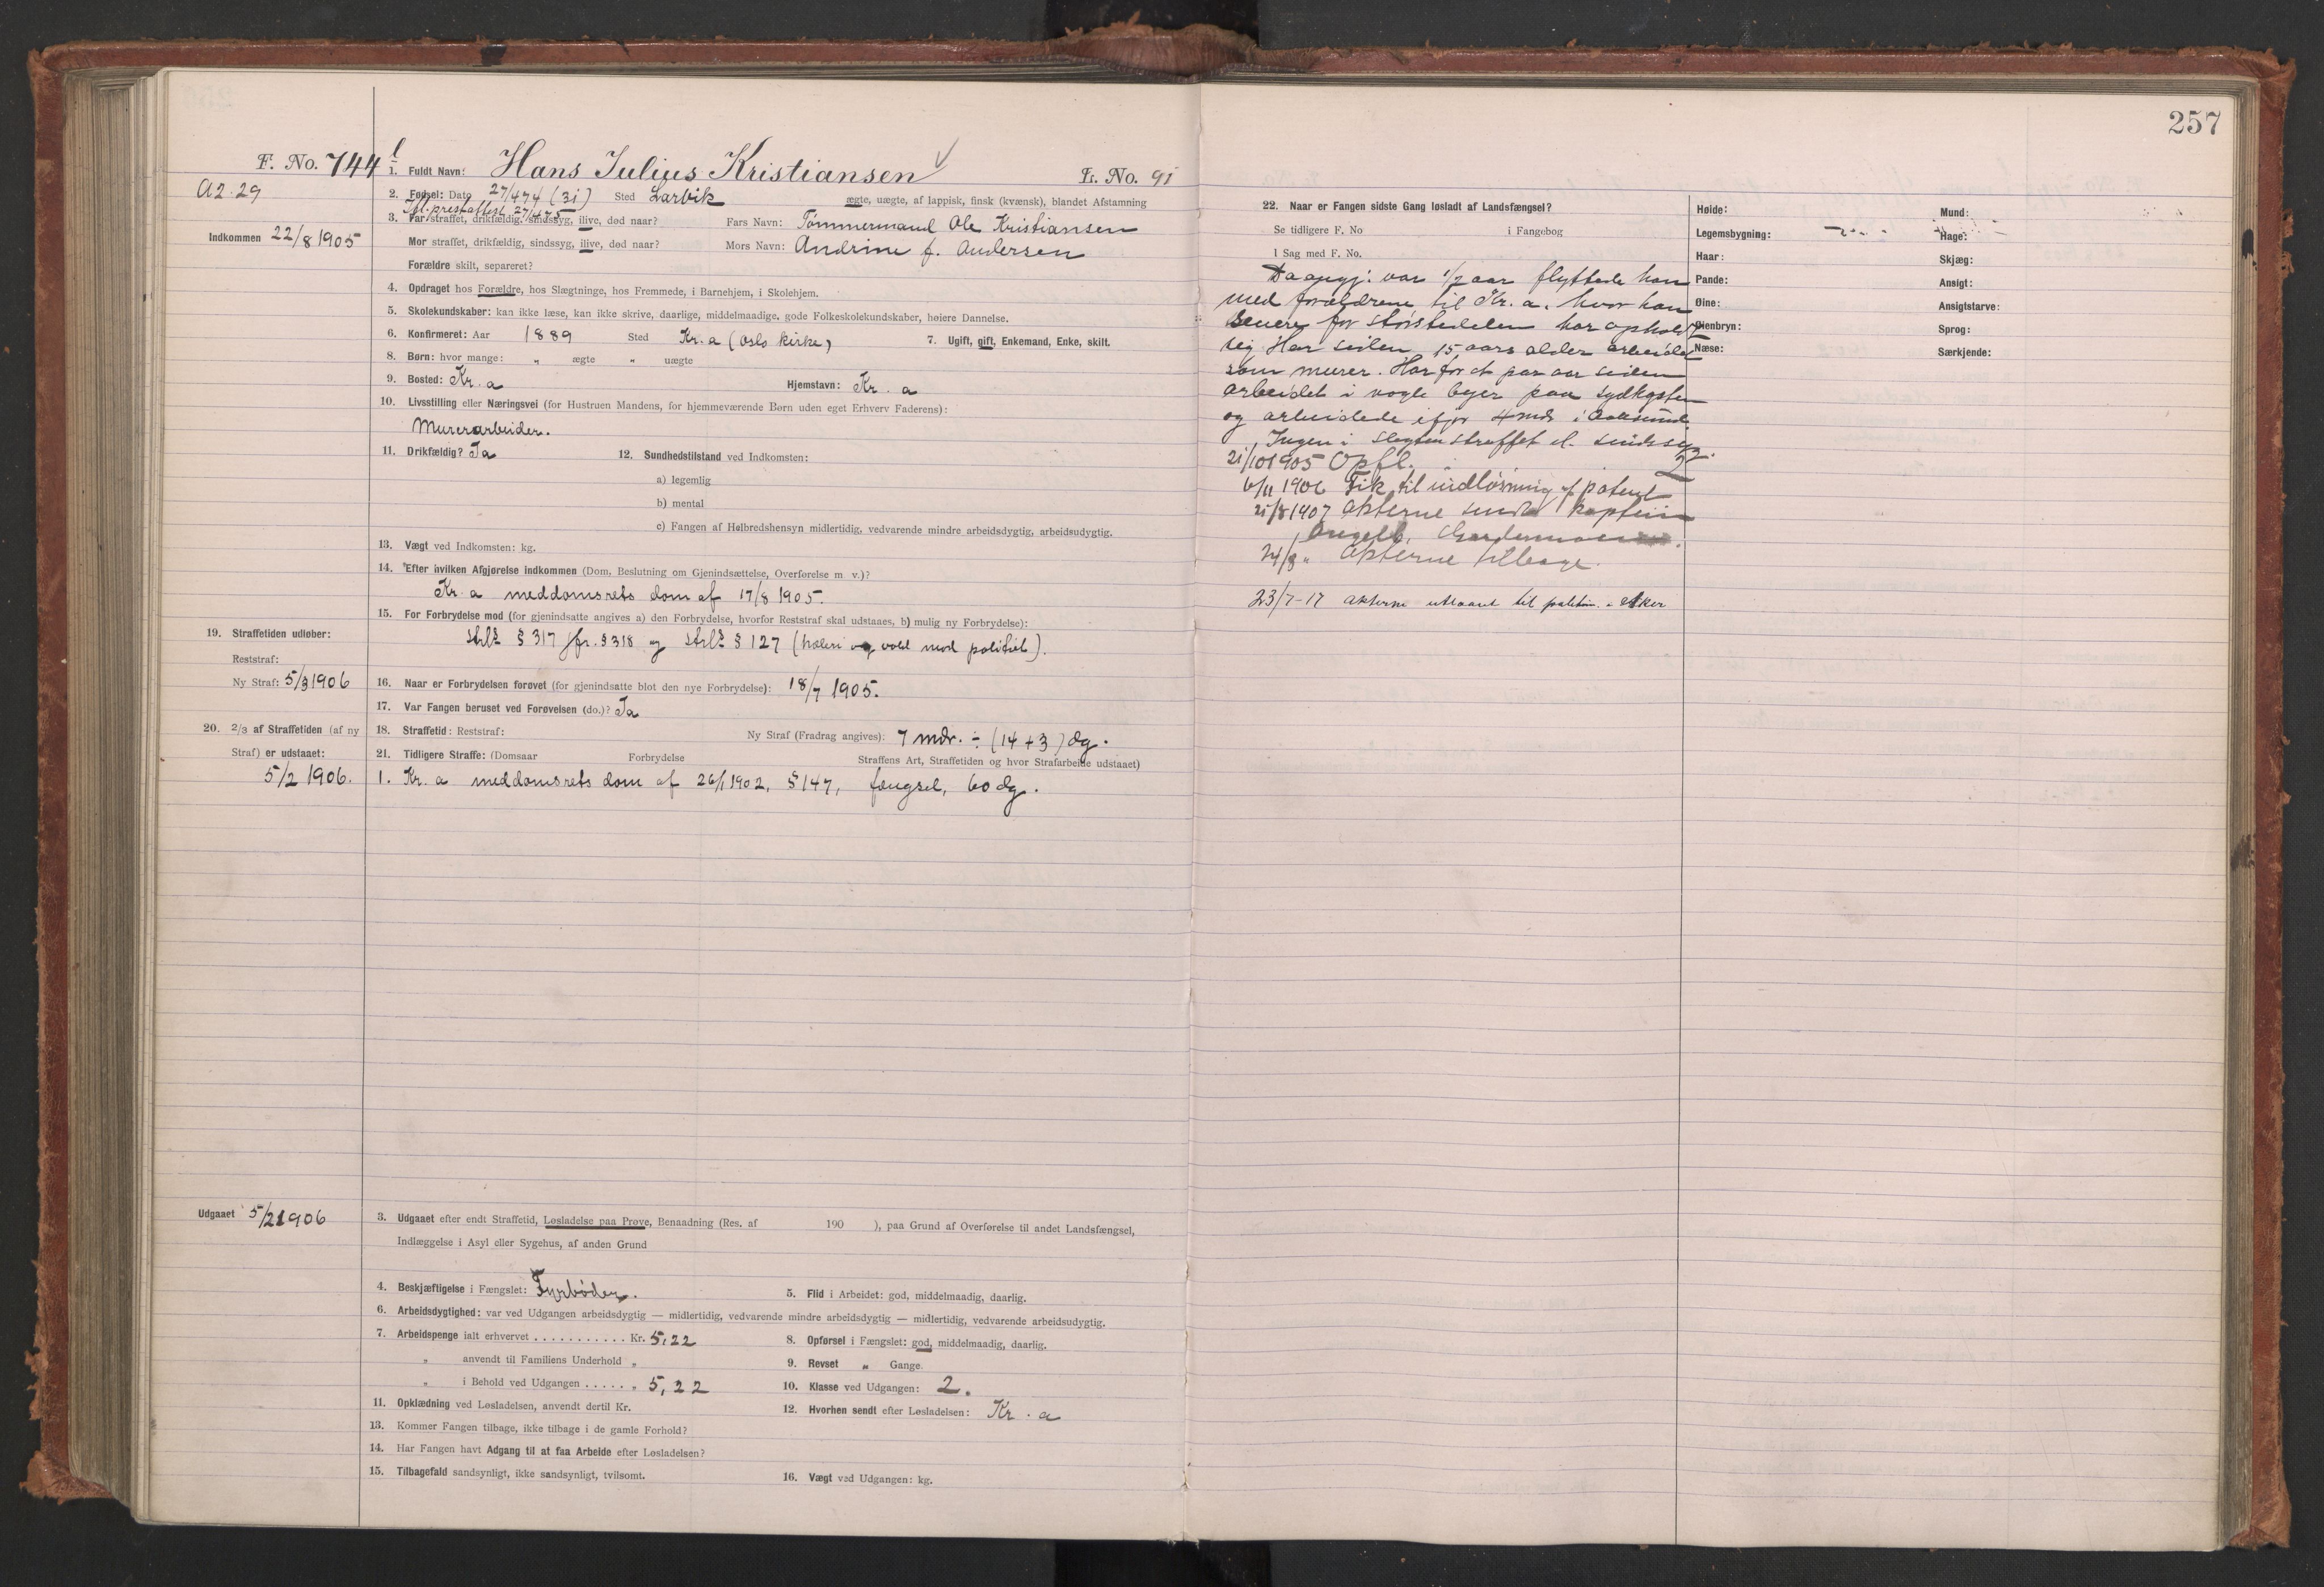 257
F. No. 744
A2.29
Indkommen 22/8 1905
1. Fuldt Navn: Hans Julius Kristiansen L. No. 91
2. Fødsel: Dato 27/4 74 (31) Sted Larvik ægte, uægte, af lappisk, finsk (kvænsk), blandet Afstamning
Ifl. prestattest 27/4 75
3. Far straffet, drikfældig, sindssyg, ilive, død naar? Fars Navn: Tømmermand Ole Kristiansen
Mor straffet, drikfældig, sindssyg, ilive, død naar? Mors Navn: Andrine f. Andersen
Forældre skilt, separeret?
4. Opdraget hos Forældre, hos Slægtninge, hos Fremmede, i Barnehjem, i Skolehjem.
5. Skolekundskaber: kan ikke læse, kan ikke skrive, daarlige, middelmaadige, gode Folkeskolekundskaber, høiere Dannelse.
6. Konfirmeret: Aar 1889 Sted Kr.a (Oslo kirke) 7. Ugift, gift, Enkemand, Enke, skilt.
8. Børn: hvor mange: „ ægte „ uægte
9. Bosted: Kr. a Hjemstavn: Kr. a
10. Livsstilling eller Næringsvei (for Hustruen Mandens, for hjemmeværende Børn uden eget Erhverv Faderens):
Murerarbeider.
11. Drikfældig? Ja 12. Sundhedstilstand ved Indkomsten:
a) legemlig
b) mental
c) Fangen af Helbredshensyn midlertidig, vedvarende mindre arbeidsdygtig, arbeidsudygtig.
13. Vægt ved Indkomsten: kg.
14. Efter hvilken Afgjørelse indkommen (Dom, Beslutning om Gjenindsættelse, Overførelse m. v.)?
Kr. a meddomsrets dom af 17/8 1905.
15. For Forbrydelse mod (for gjenindsatte angives a) den Forbrydelse, hvorfor Reststraf skal udstaaes, b) mulig ny Forbrydelse):
strl. § 317 jfr. § 318 og strl. § 127 (hæleri og vold mod politiet).
19. Straffetiden udløber:
Reststraf:
Ny Straf: 5/3 1906
16. Naar er Forbrydelsen forøvet (for gjenindsatte blot den nye Forbrydelse): 18/7 1905.
17. Var Fangen beruset ved Forøvelsen (do.)? Ja
20. 2/3 af Straffetiden (af ny Straf) er udstaaet:
5/2 1906.
18. Straffetid: Reststraf: Ny Straf (Fradrag angives): 7 mdr. ÷ (14 + 3) dg.
21. Tidligere Straffe: (Domsaar Forbrydelse Straffens Art, Straffetiden og hvor Strafarbeide udstaaet)
1. Kr. a meddomsrets dom af 26/1 1902, § 147, fængsel, 60 dg.
Udgaaet 5/2 1906
3. Udgaaet efter endt Straffetid, Løsladelse paa Prøve, Benaadning (Res. af 190 ), paa Grund af Overførelse til andet Landsfængsel,
Indlæggelse i Asyl eller Sygehus, af anden Grund
4. Beskjæftigelse i Fængslet: Fyrbøder. 5. Flid i Arbeidet: god, middelmaadig, daarlig.
6. Arbeidsdygtighed: var ved Udgangen arbeidsdygtig — midlertidig, vedvarende mindre arbeidsdygtig — midlertidig, vedvarende arbeidsudygtig.
7. Arbeidspenge ialt erhvervet . . . . . . . . . . . Kr. 5,22 8. Opførsel i Fængslet: god, middelmaadig, daarlig.
„ anvendt til Familiens Underhold „ 9. Revset „ Gange.
„ i Behold ved Udgangen . . . . . „ 5,22 10. Klasse ved Udgangen: 2.
11. Opklædning ved Løsladelsen, anvendt dertil Kr. 12. Hvorhen sendt efter Løsladelsen: Kr. a
13. Kommer Fangen tilbage, ikke tilbage i de gamle Forhold?
14. Har Fangen havt Adgang til at faa Arbeide efter Løsladelsen?
15. Tilbagefald sandsynligt, ikke sandsynligt, tvilsomt. 16. Vægt ved Udgangen: kg.
22. Naar er Fangen sidste Gang løsladt af Landsfængsel?
Se tidligere F. No i Fangebog
I Sag med F. No.
Da angj. var 1/2 aar flyttede han
med forældrene til Kr. a. hvor han
senere for størstedelen har opholdt
sig. Har siden 15 aars alder arbeidet
som murer. Har for et par aar siden
arbeidet i nogle byer paa sydkysten
og arbeidede ifjor 4 mdr i
Ingen i slægten straffet el. sindssyg.
21/10 1905 Opfl.
6/11 1906 Fik til indløsning af patent
21/8 1907 Akterne sendt kaptein
Gardermoen.
24/8 „ Akterne tilbage.
23/7-17 akterne utlaant til politim. i Aker
Høide:
Legemsbygning:
Haar:
Pande:
Øine:
Øienbryn:
Næse:
Mund:
Hage:
Skjæg:
Ansigt:
Ansigtsfarve:
Sprog:
Særkjende: